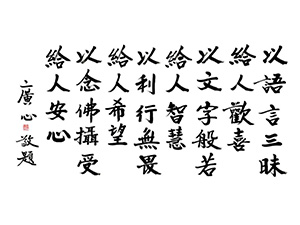 以語言三昧
給人歡喜
以文字般若
給人智慧
以利行無畏
給人希望
以念佛攝受
給人安心
廣心敬題